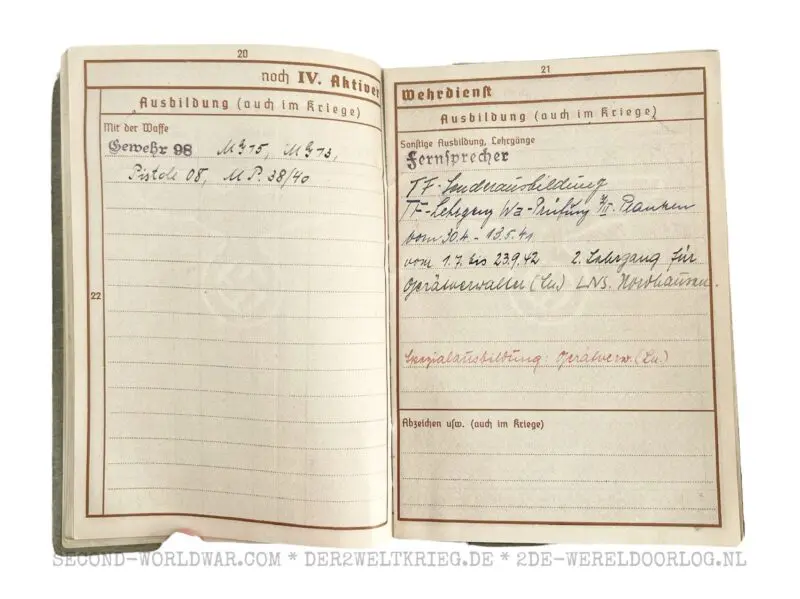 20
noch IV. Aktiver
Ausbildung (auch im Kriege)
Mit der Waffe
Gewehr 98 MG 15, MG 13,
Pistole 08, M.P. 38/40
22
21
Wehrdienst
Ausbildung (auch im Kriege)
Sonstige Ausbildung, Lehrgänge
Fernsprecher
TF-Sonderausbildung
TF-Lehrgang Wa-Prüfung Planken
vom 30.4. - 13.5.41
vom 1.7. bis 23.9.42 2. Lehrgang für
Gerätverwalter (Ln.) LNS. Nordhausen.
Spezialausbildung: Gerätverw. (Ln.)
Abzeichen usw. (auch im Kriege)
SECOND-WORLDWAR.COM * DER2WELTKRIEG.DE * 2DE-WERELDOORLOG.NL